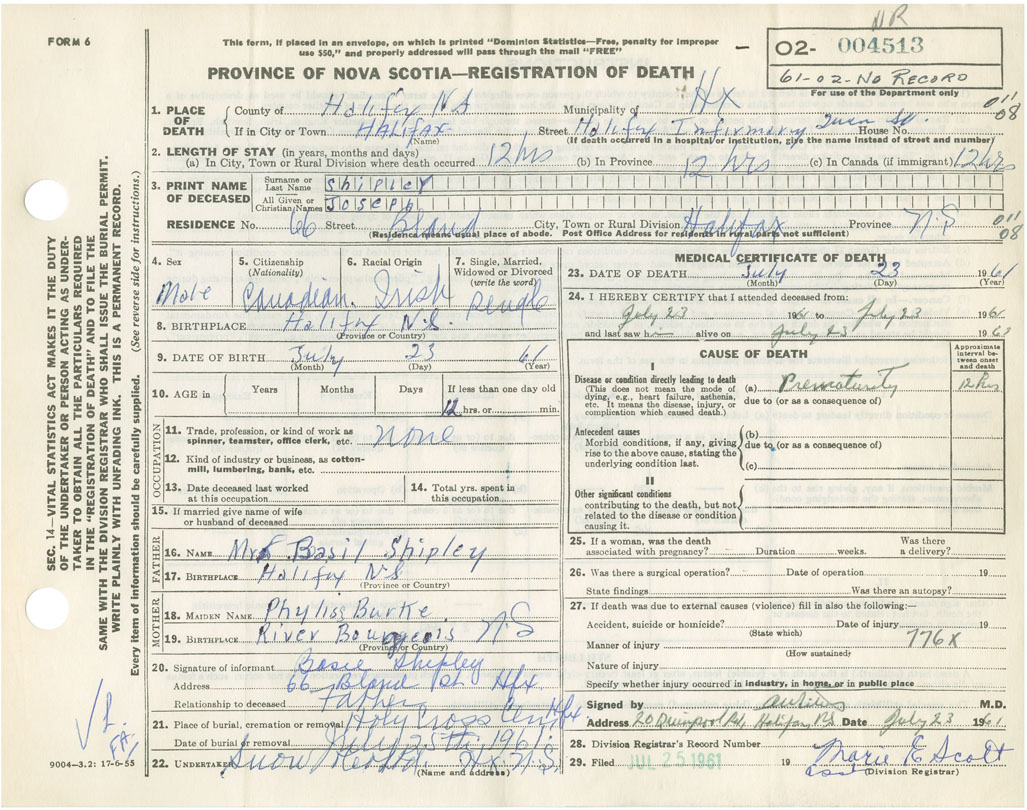 NR
FORM 6
This form, if placed in an envelope, on which is printed "Dominion Statistics—Free, penalty for improper
use $50," and properly addressed will pass through the mail "FREE"
02- 004513
61-02-NO RECORD
For use of the Department only
PROVINCE OF NOVA SCOTIA—REGISTRATION OF DEATH
1. PLACE OF DEATH
County of Halifax N.S. Municipality of Hx
If in City or Town HALIFAX (Name) Street Halifax Infirmary Queen St. House No.
(If death occurred in a hospital or institution, give the name instead of street and number)
011
08
2. LENGTH OF STAY (in years, months and days)
(a) In City, Town or Rural Division where death occurred 12 hrs (b) In Province 12 hrs (c) In Canada (if immigrant) 12 hrs
3. PRINT NAME OF DECEASED
Surname or Last Name Shipley
All Given or Christian Names JOSEPH
RESIDENCE No. 66 Street Bland City, Town or Rural Division Halifax Province N.S
(Residence means usual place of abode. Post Office Address for residents in rural parts not sufficient)
011
08
4. Sex
Male
5. Citizenship (Nationality)
Canadian
6. Racial Origin
Irish
7. Single, Married, Widowed or Divorced (write the word)
Single
8. BIRTHPLACE Halifax N.S.
(Province or Country)
9. DATE OF BIRTH July 23 1961
(Month) (Day) (Year)
10. AGE in Years Months Days If less than one day old
12 hrs. or min.
OCCUPATION
11. Trade, profession, or kind of work as spinner, teamster, office clerk, etc. none
12. Kind of industry or business, as cotton-mill, lumbering, bank, etc.
13. Date deceased last worked at this occupation
14. Total yrs. spent in this occupation
15. If married give name of wife or husband of deceased
FATHER
16. NAME Basil Shipley
17. BIRTHPLACE Halifax N.S
(Province or Country)
MOTHER
18. MAIDEN NAME Phyliss Burke
19. BIRTHPLACE River Bourgeois N.S
(Province or Country)
20. Signature of informant Shipley
Address 66 Bland St Hfx.
Relationship to deceased Father
21. Place of burial, cremation or removal Holy Cross Cem Hfx
Date of burial or removal July 25th 1961
22. UNDERTAKER Snow Hx N.S.
(Name and address)
MEDICAL CERTIFICATE OF DEATH
23. DATE OF DEATH July 23 1961
(Month) (Day) (Year)
24. I HEREBY CERTIFY that I attended deceased from:
July 23 1961 to July 23 1961
and last saw him alive on July 23 196
CAUSE OF DEATH
Approximate interval between onset and death
I
Disease or condition directly leading to death
(This does not mean the mode of dying, e.g., heart failure, asthenia, etc. It means the disease, injury, or complication which caused death.)
(a) Prematurity 12 hrs
due to (or as a consequence of)
Antecedent causes
Morbid conditions, if any, giving rise to the above cause, stating the underlying condition last.
(b)
due to (or as a consequence of)
(c)
II
Other significant conditions
contributing to the death, but not related to the disease or condition causing it.
25. If a woman, was the death associated with pregnancy? Duration weeks. Was there a delivery?
26. Was there a surgical operation? Date of operation 19
State findings Was there an autopsy?
27. If death was due to external causes (violence) fill in also the following:—
Accident, suicide or homicide? Date of injury 19
(State which)
776X
Manner of injury
(How sustained)
Nature of injury
Specify whether injury occurred in industry, in home, or in public place
Signed by M.D.
Address 20 Quinpool Rd. Halifax NS Date July 23 1961
28. Division Registrar's Record Number
29. Filed JUL 25 1961 19 Marie E Scott
(Division Registrar)
SEC. 14—VITAL STATISTICS ACT MAKES IT THE DUTY
OF THE UNDERTAKER OR PERSON ACTING AS UNDER-
TAKER TO OBTAIN ALL THE PARTICULARS REQUIRED
IN THE "REGISTRATION OF DEATH" AND TO FILE THE
SAME WITH THE DIVISION REGISTRAR WHO SHALL ISSUE THE BURIAL PERMIT.
WRITE PLAINLY WITH UNFADING INK. THIS IS A PERMANENT RECORD.
Every item of information should be carefully supplied. (See reverse side for instructions.)
9004—3.2: 17-6-55